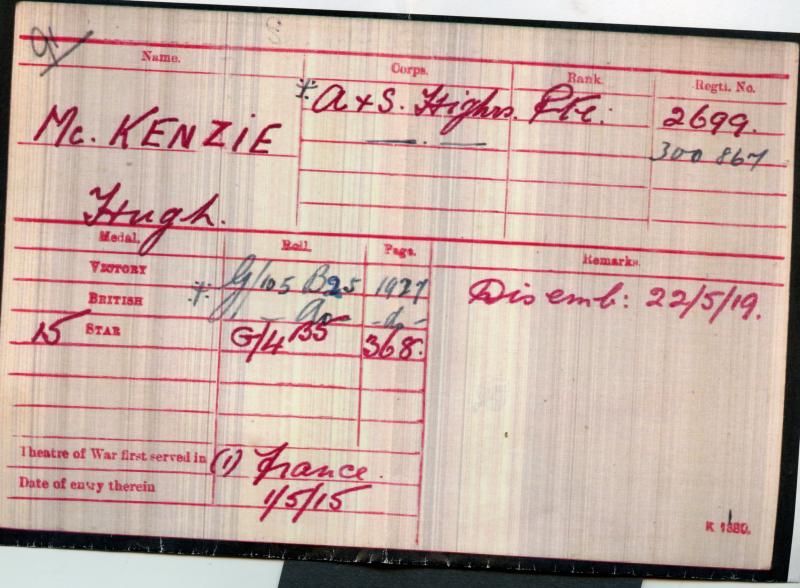 Name. Corps. Rank. Regtl. No.
Mc. KENZIE * A & S. Highrs. Pte. 2699.
300867
Hugh.
Medal. Roll. Page. Remarks.
VICTORY * G/105 B25 1927 Disemb: 22/5/19.
BRITISH - do - - do -
15 STAR G/4 B5 368.
Theatre of War first served in (1) France.
Date of entry therein 1/5/15
K 1380.